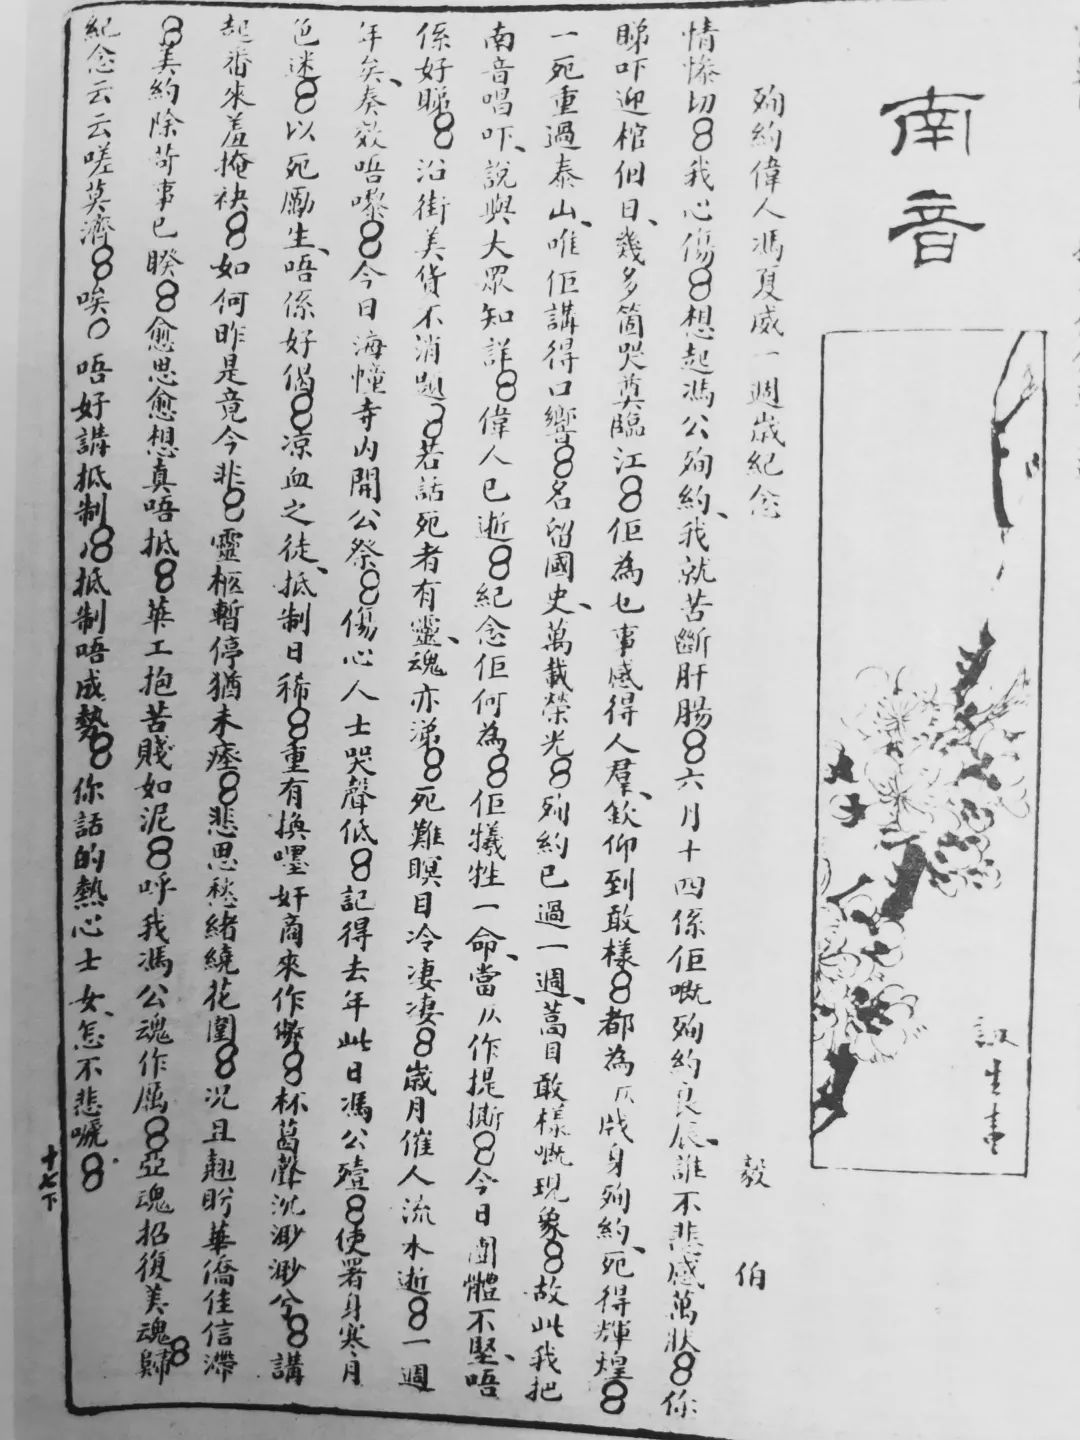 南音
殉約偉人馮夏威一週歲紀念
毅伯
情慘切8我心傷8想起馮公殉約、我就苦斷肝腸8六月十四係佢嘅殉約良辰、誰不悲感萬狀8你
睇吓迎棺個日、幾多箇哭奠臨江8佢為乜事感得人羣、欽仰到敢樣8都為仄戕身殉約、死得輝煌8
一死重過泰山、唯佢講得口響8名留國史、萬載榮光8殉約已過一週、蒿目敢樣嘅現象8故此我把
南音唱吓、說與大眾知詳8偉人已逝8紀念佢何為8佢犧牲一命、當仄作提撕8今日團體不堅、唔
係好睇8沿街美貨不消題8若話死者有靈、魂亦涕8死難瞑目冷凄凄8歲月催人流水逝8一週
年矣、奏效唔嚟8今日海幢寺內開公祭8傷心人士哭聲低8記得去年此日馮公殪8使署身寒為
色迷8以死勵生、唔係好偈8凉血之徒、抵制日稀8重有換嘜奸商來作弊8杯葛聲沉渺渺兮8講
起番來羞掩袂8如何昨是竟今非8靈柩暫停猶未瘞8悲思愁緒繞花圍8况且翹盼華僑佳信滯
8美約除苛事已睽8愈思愈想真唔抵8華工抱苦賤如泥8呼我馮公魂作厲8亞魂招復美魂歸8
紀念云云嗟莫濟8唉〇唔好講抵制8抵制唔成勢8你話的熱心士女、怎不悲嘶8
十七下